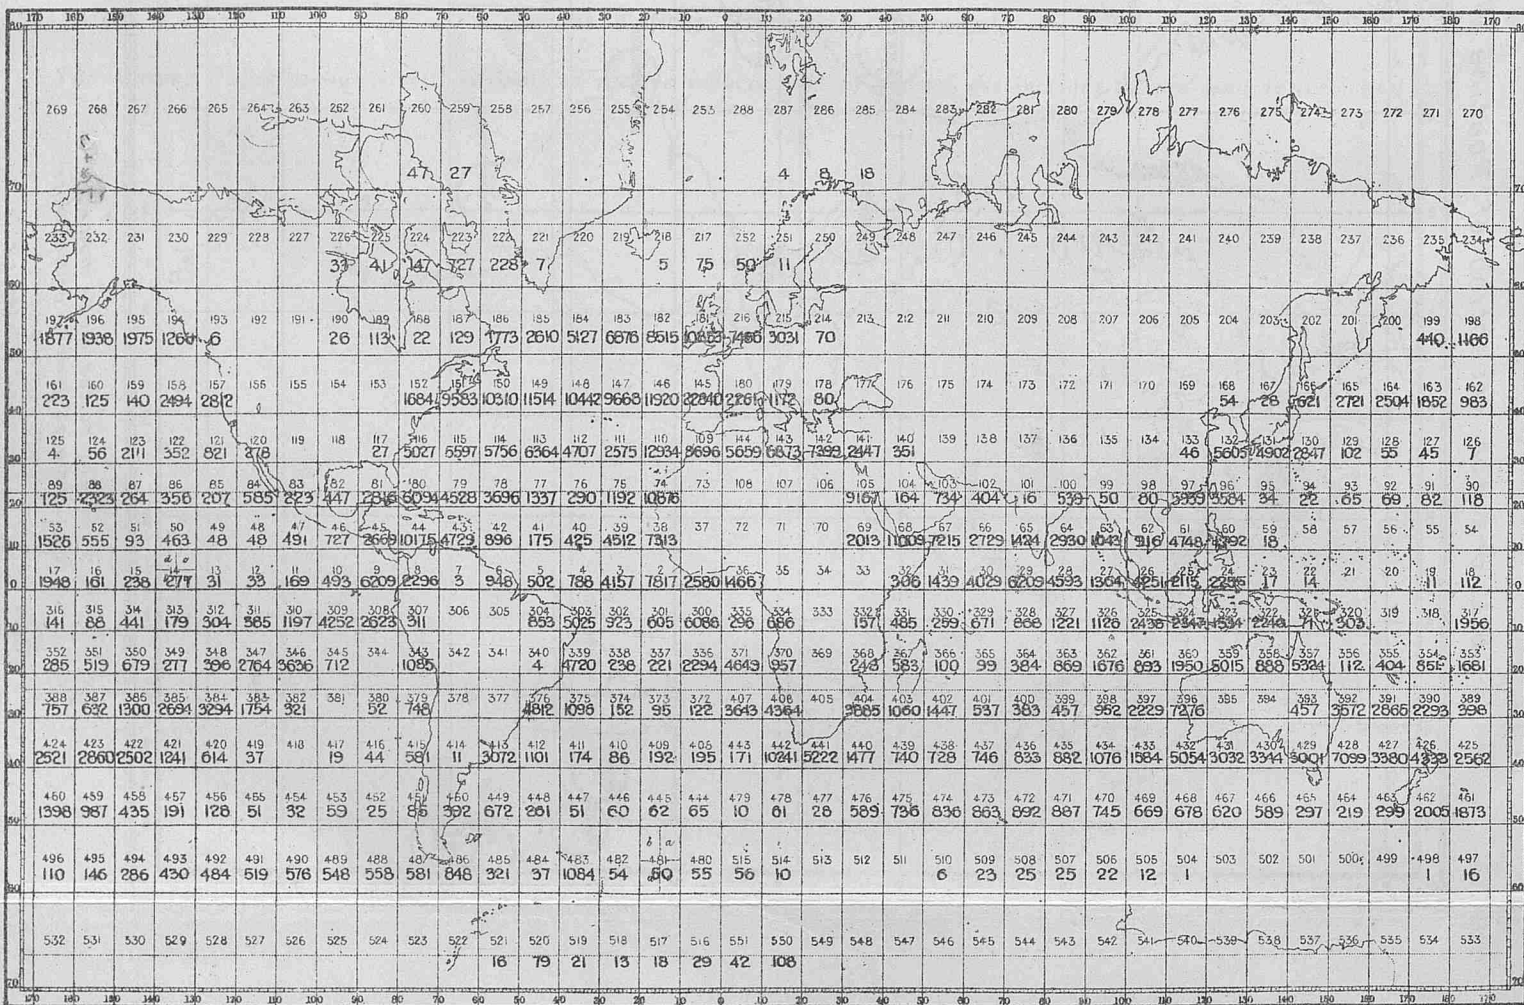 170 160 150 140 130 120 110 100 90 80 70 60 50 40 30 20 10 0 10 20 30 40 50 60 70 80 90 100 110 120 130 140 150 160 170 180 170
80
269 268 267 266 265 264 263 262 261 260 259 258 257 256 255 254 253 288 287 286 285 284 283 282 281 280 279 278 277 276 275 274 273 272 271 270
47 27 4 8 18
70 70
233 232 231 230 229 228 227 226 225 224 223 222 221 220 219 218 217 252 251 250 249 248 247 246 245 244 243 242 241 240 239 238 237 236 235 234
41 147 727 228 7 5 75 50 11
60 60
197 196 195 194 193 192 191 190 189 188 187 186 185 184 183 182 181 216 215 214 213 212 211 210 209 208 207 206 205 204 203 202 201 200 199 198
1877 1938 1975 6 26 113 22 129 1773 2610 5127 6876 8515 3031 70 440 1166
50 50
161 160 159 158 157 156 155 154 153 152 151 150 149 148 147 146 145 180 179 178 177 176 175 174 173 172 171 170 169 168 167 166 165 164 163 162
223 125 140 2494 2812 1684 9583 10310 11514 10442 9668 11920 1172 80 54 28 2721 2504 1852 983
40 40
125 124 123 122 121 120 119 118 117 116 115 114 113 112 111 110 109 144 143 142 141 140 139 138 137 136 135 134 133 132 131 130 129 128 127 126
4 56 2111 352 821 278 27 5027 5597 5756 6364 4707 2575 12934 8696 5659 6873 7398 2447 351 46 5605 4902 2847 102 55 45 7
30 30
89 88 87 86 85 84 83 82 81 80 79 78 77 76 75 74 73 108 107 106 105 104 103 102 101 100 99 98 97 96 95 94 93 92 91 90
125 2323 264 356 207 585 223 447 2816 6094 4528 3696 1337 290 1192 10876 9167 164 734 404 16 539 50 80 5939 3584 34 22 65 69 82 118
20 20
53 52 51 50 49 48 47 46 45 44 43 42 41 40 39 38 37 72 71 70 69 68 67 66 65 64 63 62 61 60 59 58 57 56 55 54
1526 555 93 463 48 48 491 727 2669 10175 4729 896 175 425 4512 7313 2013 11009 7215 2729 1424 2930 1043 916 4748 4392 18
10 10
17 16 15 14 13 12 11 10 9 8 7 6 5 4 3 2 1 36 35 34 33 32 31 30 29 28 27 26 25 24 23 22 21 20 19 18
1948 161 238 277 31 33 169 493 6209 2296 3 948 502 788 4157 7817 2580 1466 306 1439 4029 6209 4593 1364 4251 2115 2255 17 14 11 112
0 0
316 315 314 313 312 311 310 309 308 307 306 305 304 303 302 301 300 335 334 333 332 331 330 329 328 327 326 325 324 323 322 321 320 319 318 317
141 88 441 179 304 385 1197 4252 2623 311 853 5025 923 605 6088 296 686 157 485 259 671 868 1221 1126 2438 2343 1534 2248 71 303 1956
10 10
352 351 350 349 348 347 346 345 344 343 342 341 340 339 338 337 336 371 370 369 368 367 366 365 364 363 362 361 360 359 358 357 356 355 354 353
285 519 679 277 396 2764 3636 712 1085 4 4720 238 221 2294 4643 957 243 583 100 99 384 869 1676 893 1950 5015 888 5324 112 404 851 1681
20 20
388 387 386 385 384 383 382 381 380 379 378 377 376 375 374 373 372 407 406 405 404 403 402 401 400 399 398 397 396 395 394 393 392 391 390 389
757 632 1300 2694 3294 1754 321 52 748 4812 1096 152 95 122 3643 4364 3885 1060 1447 537 383 457 952 2229 7276 457 3572 2865 2293 398
30 30
424 423 422 421 420 419 418 417 416 415 414 413 412 411 410 409 408 443 442 441 440 439 438 437 436 435 434 433 432 431 430 429 428 427 426 425
2521 2860 2502 1241 614 37 19 44 581 11 3072 1101 174 86 192 195 171 10241 5222 1477 740 728 746 833 882 1076 1584 5054 3032 3344 9001 7099 3380 4333 2562
40 40
460 459 458 457 456 455 454 453 452 451 450 449 448 447 446 445 444 479 478 477 476 475 474 473 472 471 470 469 468 467 466 465 464 463 462 461
1398 987 435 191 128 51 32 59 25 86 392 672 261 51 60 62 65 10 61 28 589 736 836 863 892 887 745 669 678 620 589 297 219 299 2005 1873
50 50
b a
496 495 494 493 492 491 490 489 488 487 486 485 484 483 482 481 480 515 514 513 512 511 510 509 508 507 506 505 504 503 502 501 500 499 498 497
110 146 286 430 484 519 576 548 558 581 848 321 37 1084 54 50 55 56 10 6 23 25 25 22 12 1 1 16
60 60
532 531 530 529 528 527 526 525 524 523 522 521 520 519 518 517 516 551 550 549 548 547 546 545 544 543 542 541 540 539 538 537 536 535 534 533
16 79 21 13 18 29 42 108
70 70
170 160 150 140 130 120 110 100 90 80 70 60 50 40 30 20 10 0 10 20 30 40 50 60 70 80 90 100 110 120 130 140 150 160 170 180 170